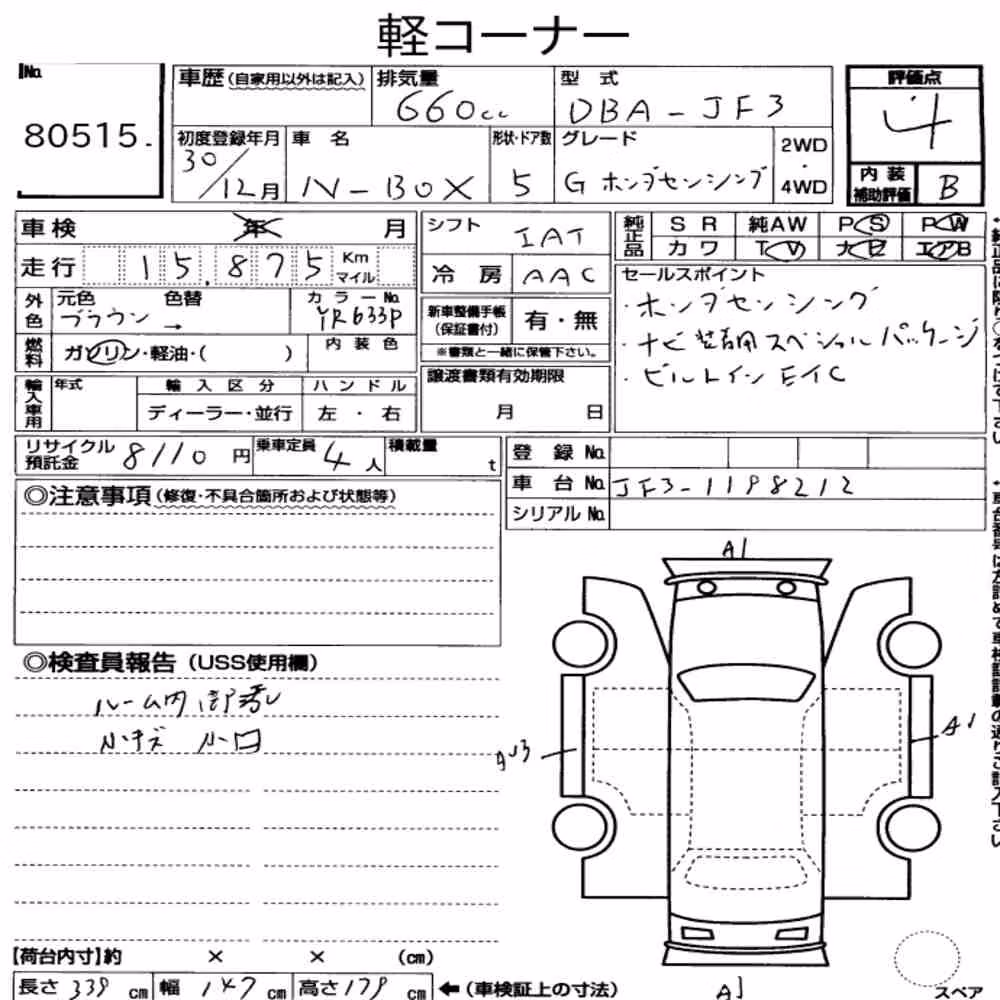 軽コーナー
No.
80515.
車歴(自家用以外は記入)
排気量
660cc
型 式
DBA-JF3
評価点
4
初度登録年月
30/12月
車 名
N-BOX
形状・ドア数
5
グレード
G ホンダセンシング
2WD
・
4WD
内装
補助評価
B
車検
年 月
走行
15,875
Km
マイル
シフト
IAT
冷 房
AAC
純正品
SR 純AW PS PW
カワ TV ナビ エアB
外色
元色
ブラウン
色替
→
カラーNo.
YR633P
燃料
ガソリン・軽油・( )
内装色
新車整備手帳
(保証書付)
有・無
※書類と一緒に保管下さい。
セールスポイント
・ホンダセンシング
・ナビ装着用スペシャルパッケージ
・ビルトインETC
輸入車用
年式
輸入区分
ディーラー・並行
ハンドル
左 ・ 右
譲渡書類有効期限
月 日
リサイクル
預託金
8110 円
乗車定員
4人
積載量
t
登 録 No.
車 台 No.
JF3-1198212
シリアル No.
◎注意事項(修復・不具合箇所および状態等)
◎検査員報告(USS使用欄)
ルーム内
小キズ 小凹
A1
A1
A1
【荷台内寸】約 × × (cm)
長さ 339 cm
幅 147 cm
高さ 179 cm
←(車検証上の寸法)
スペア